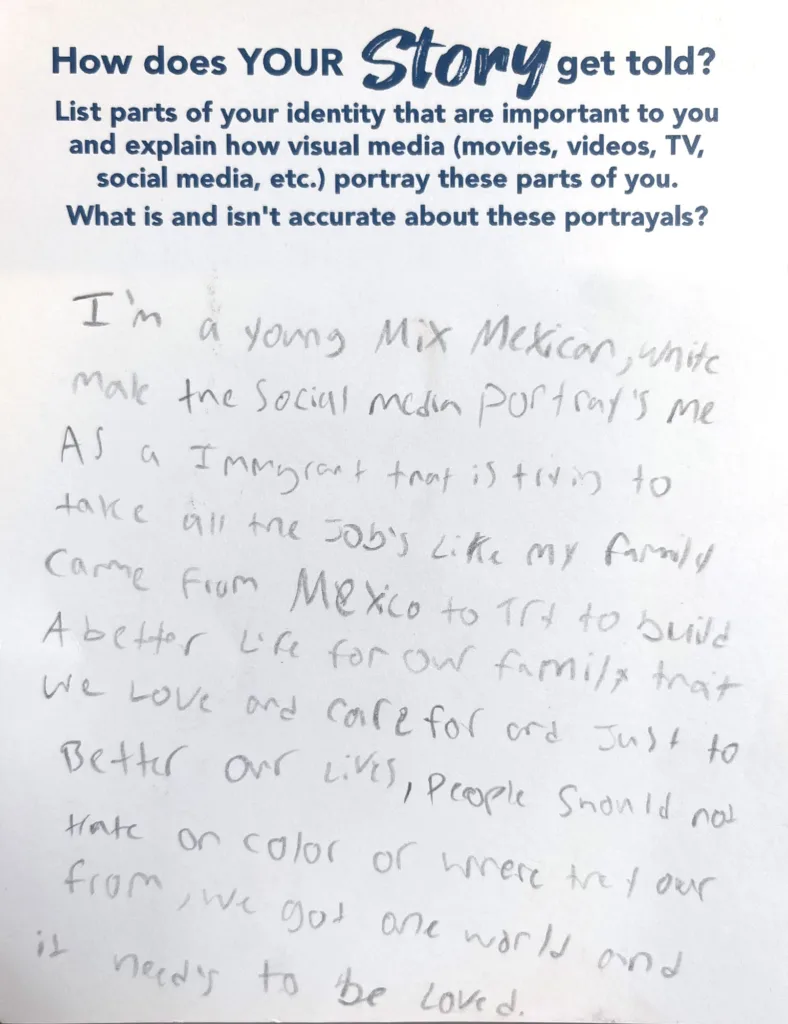 How does YOUR Story get told?
List parts of your identity that are important to you
and explain how visual media (movies, videos, TV,
social media, etc.) portray these parts of you.
What is and isn't accurate about these portrayals?
I'm a young Mix Mexican, white
male the Social media portray's me
As a Immgrant that is tryin to
take all the Job's Like my family
Came From Mexico to Try to build
A better Life for our family that
We Love and care for and Just to
Better our Lives, People Should not
Hate on color or where they our
from, we got one world and
it need's to be Loved.